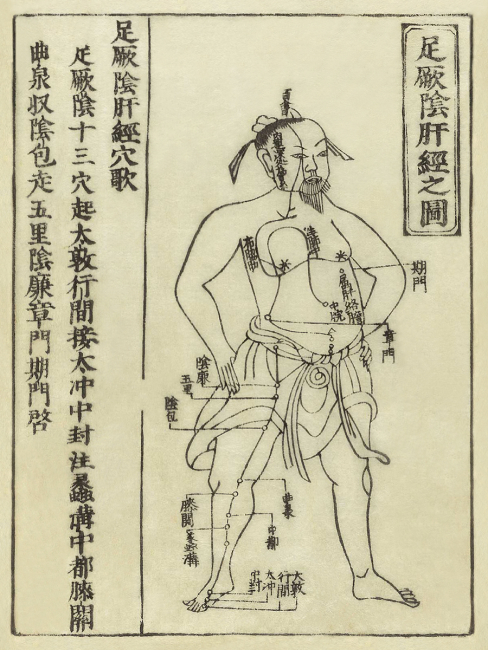 足厥陰肝經之圖
百會
期門
屬肝絡膽
中脘
章門
陰廉
五里
陰包
曲泉
膝關
中都
蠡溝
大敦
行間
太冲
中封
足厥陰肝經穴歌
足厥陰十三穴起太敦行間接太冲中封注蠡溝中都膝關
曲泉収陰包走五里陰廉章門期門啓